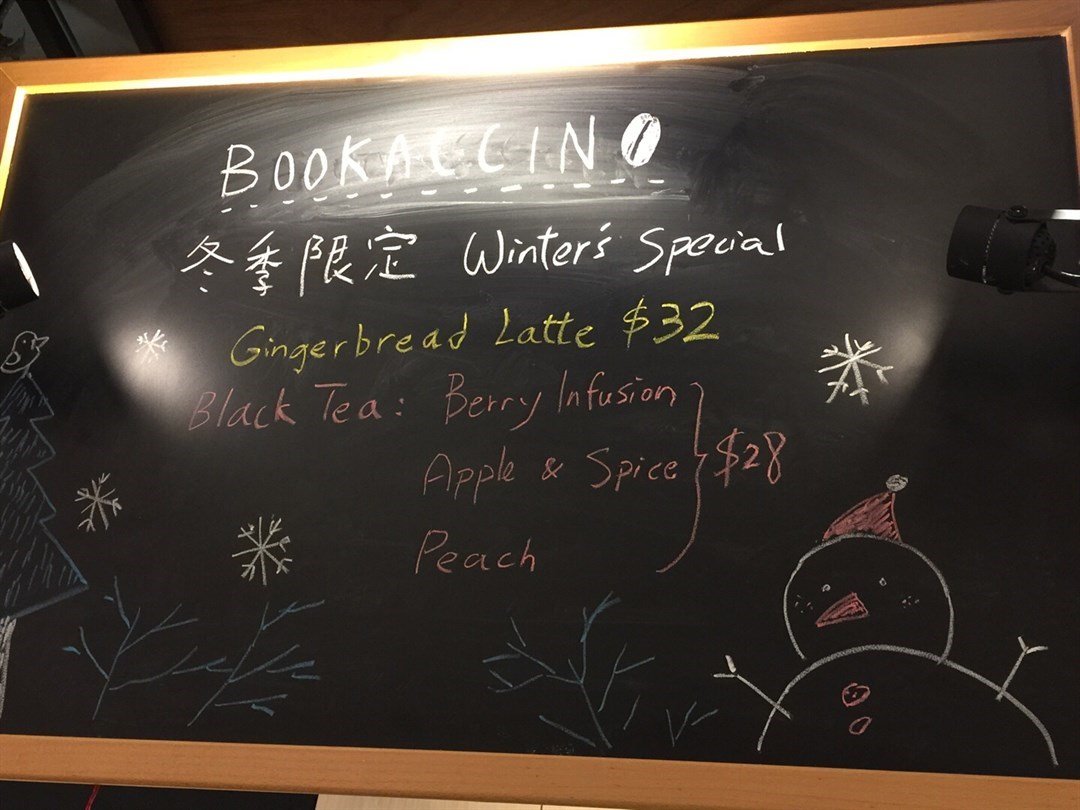 BOOKACCINO
冬季限定 Winter's Special
Gingerbread Latte $32
Black Tea: Berry Infusion
Apple & Spice $28
Peach